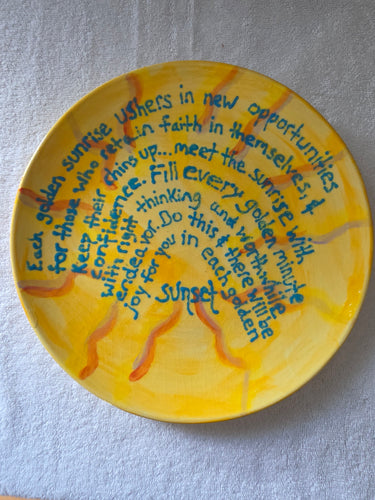 Each golden sunrise ushers in new opportunities
for those who retain faith in themselves, &
Keep their chins up... meet the sunrise with
confidence. Fill every golden minute
with right thinking and worthwhile
endeavor. Do this & there will be
joy for you in each golden
sunset